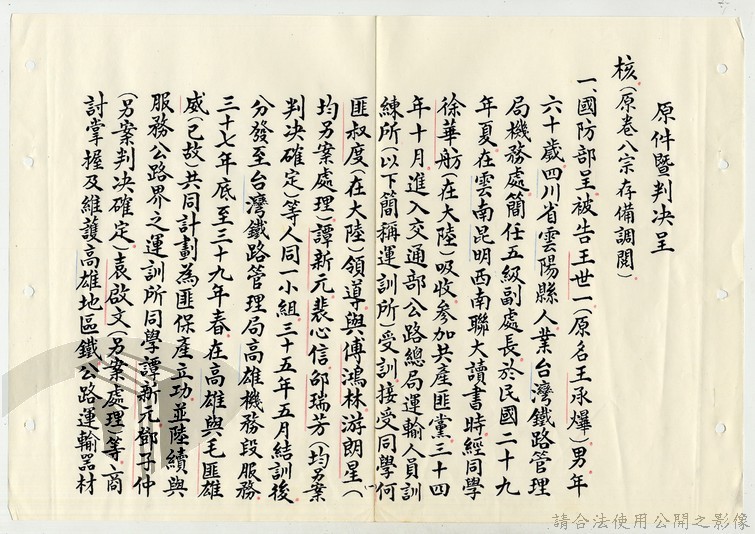 原件暨判决呈
核(原卷八宗存備調閱)
一、國防部呈:被告王世一(原名王承爗)男年
六十歲四川省雲陽縣人業台灣鐵路管理
局機務處簡任五級副處長於民國二十九
年夏在雲南昆明西南聯大讀書時經同學
徐華舫(在大陸)吸收參加共產匪黨三十四
年十月進入交通部公路總局運輸人員訓
練所(以下簡稱運訓所)受訓接受同學何
匪叔度(在大陸)領導與傅鴻林游朗星(
均另案處理)譚新元裴心信邵瑞芳(均另案
判決確定)等人同一小組三十五年五月結訓後
分發至台灣鐵路管理局高雄機務段服務
三十七年底至三十九年春在高雄與毛匪雄
威(已故)共同計劃為匪保產立功並陸續與
服務公路界之運訓所同學譚新元鄧子仲
(另案判决確定)袁啟文(另案處理)等商
討掌握及維護高雄地區鐵公路運輸器材
請合法使用公開之影像